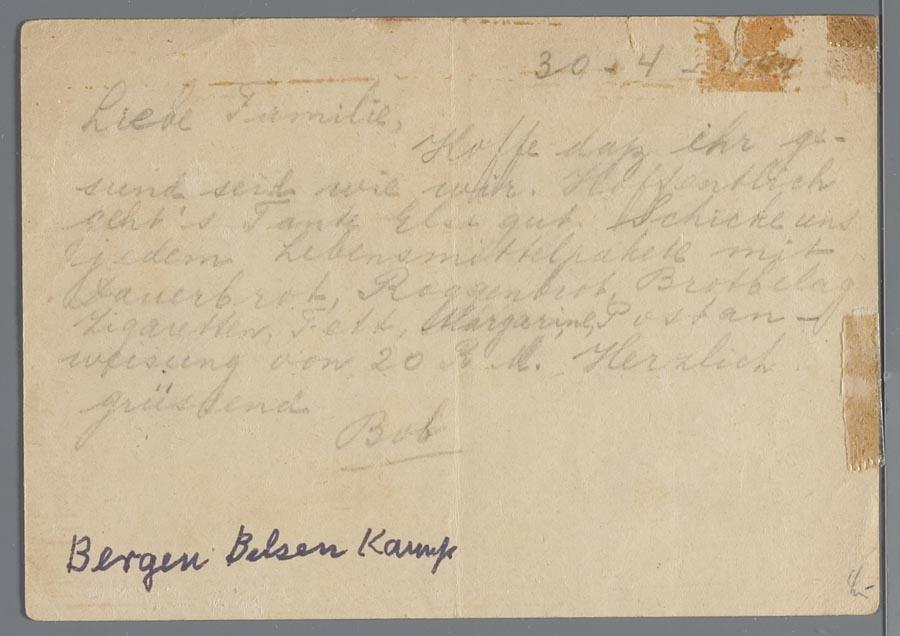 30-4-1944
Liebe Familie,
Hoffe daß ihr ge-
sund seid wie wir. Hoffentlich
geht's Tante Else gut. Schicke uns
jedem Lebensmittelpakete mit
Dauerbrot, Roggenbrot, Brotbelag
Zigaretten, Fett, Margarine, Postan-
weisung von 20 R M. Herzlich
grüssend
Bob
Bergen Belsen Kamp